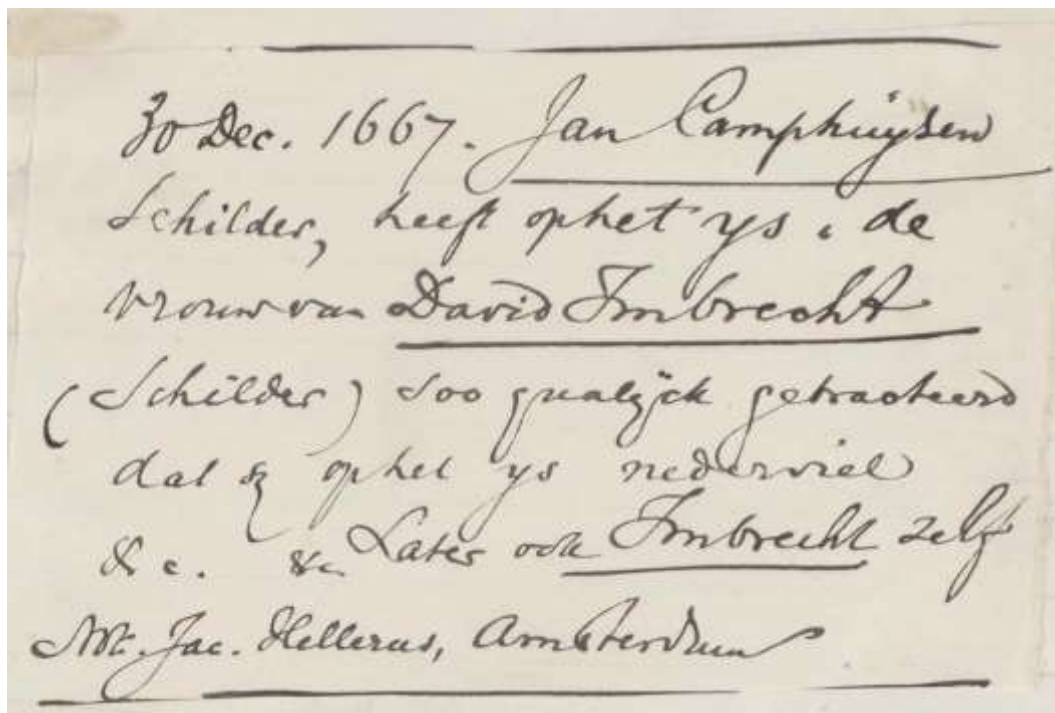 30 Dec. 1667. Jan Camphuijsen
Schilder, heeft op het ys, de
vrouw van David Imbrecht
(Schilder) soo qualijck getracteerd
dat sij op het ys nederviel
&c. &c. Later ook Imbrecht zelf
Not. Jac. Hellerus, Amsterdam